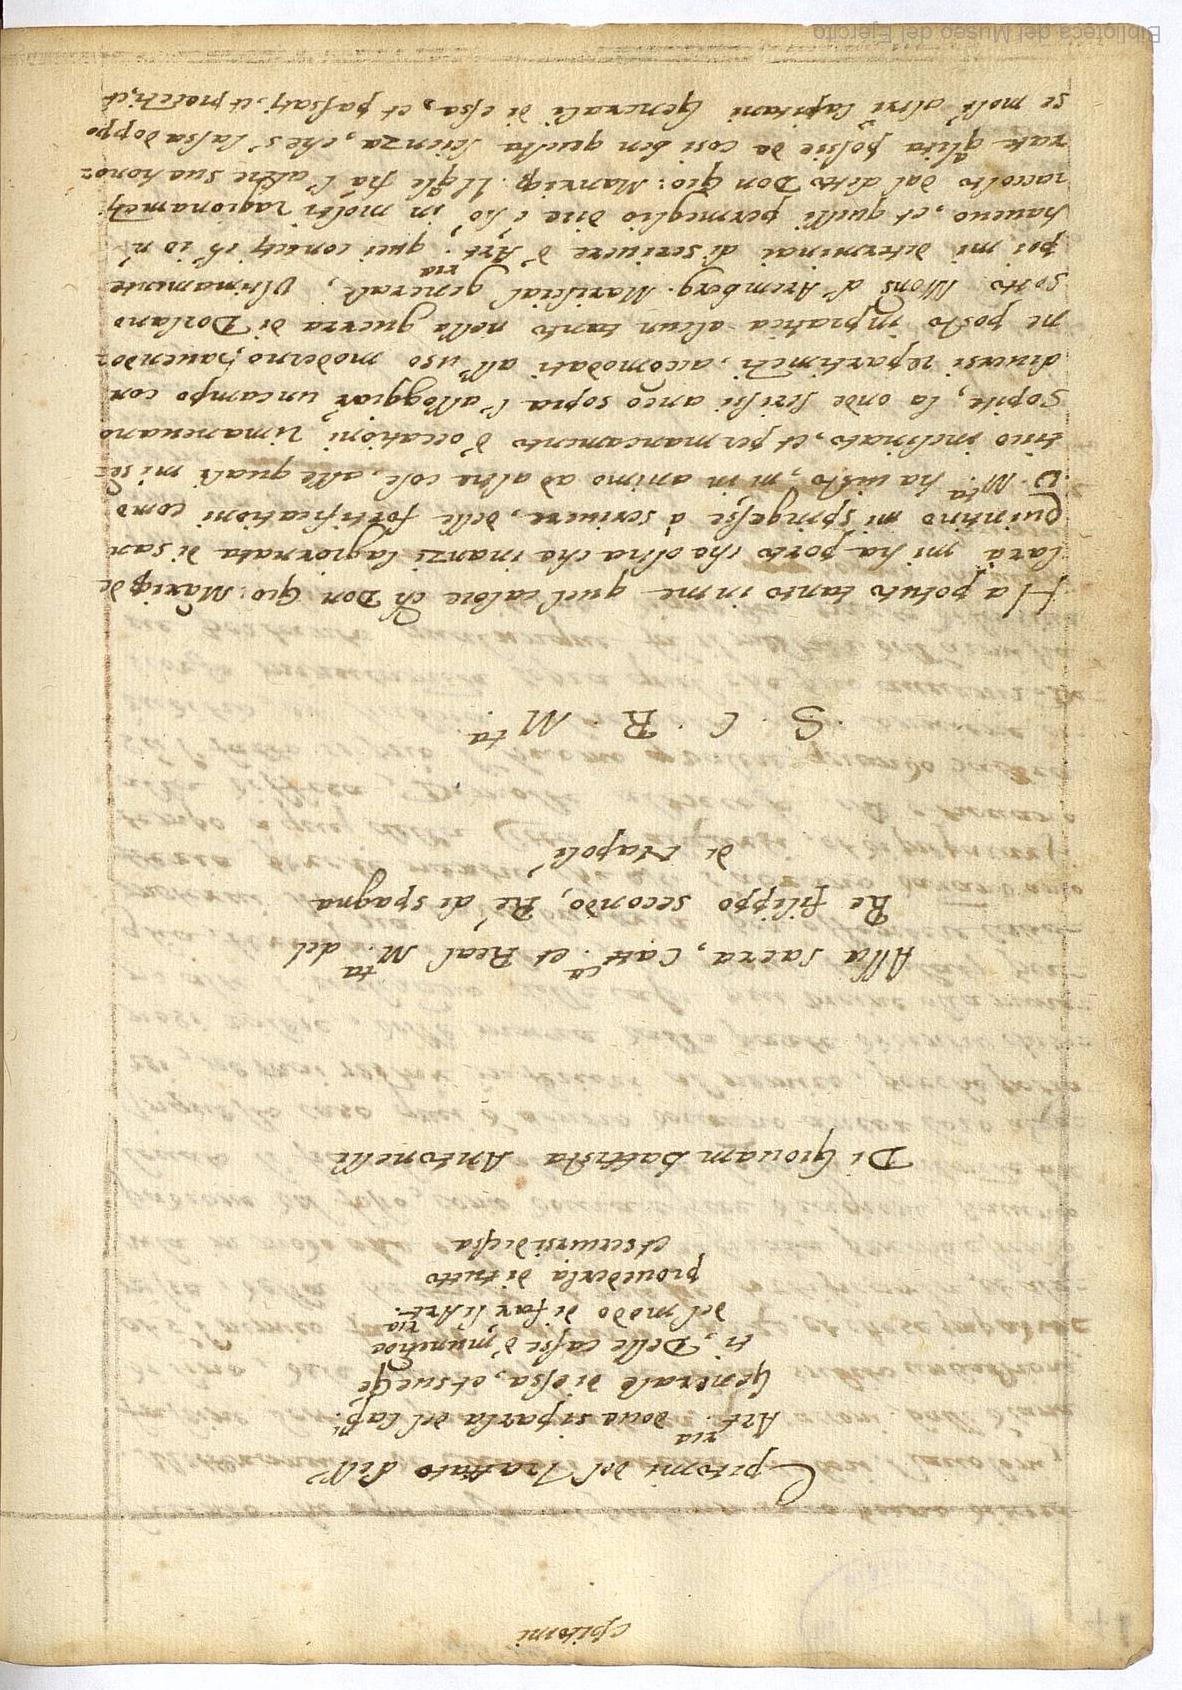 epitomi
Epitomi del Trattato dell'
Art.ria doue si parla del Cap.n
Generale di essa, et sue ge
ti, Delle casse d' munitiõe
del modo di far l'Art.ria
prouederla di tutto
et seruirsi di essa
Di Giouambattista Antonelli
Alla Sacra, Catt.ca et Real M.ta del
Re filippo secondo, Re di spagna
di Napoli
S. C. R. M.ta
Ha potuto tanto in me quel calore ch Don Gio: Mãriq de
Lara mi ha porto che oltra che inanzi la giornata di san
Quintino mi spingesse à scriuere, delle fortificationi como
V. M.ta ha uisto, m in animo ad altre cose, alle quali mi sẽ
tiuo inclinato, et per mancamento d'occationi rimaneuano
Sopite, la onde scrissi anco sopra l'alloggiar un campo con
diuersi repartimẽti, accomodati all'uso moderno, hauendo=
ne posto in pratica alcun tanto nella guerra di Dorlano
sotto Mons d'Aremberg. Marescial generale, Vltimamente
poi mi determinai di scriuere d'Art.ria quei concetti ch io n'
haueuo, et quelli per meglio dire ch'hò in molti ragionamẽti
raccolto dal ditto Don Gio: Manriq. Il qle frà l'altre sue hono=
rate qlità possie de cosi ben questa scienza, che s' lassa doppo
se molti altri Capitani Generali di essa, et passati, et presẽti, et
Biblioteca del Museo del Ejército